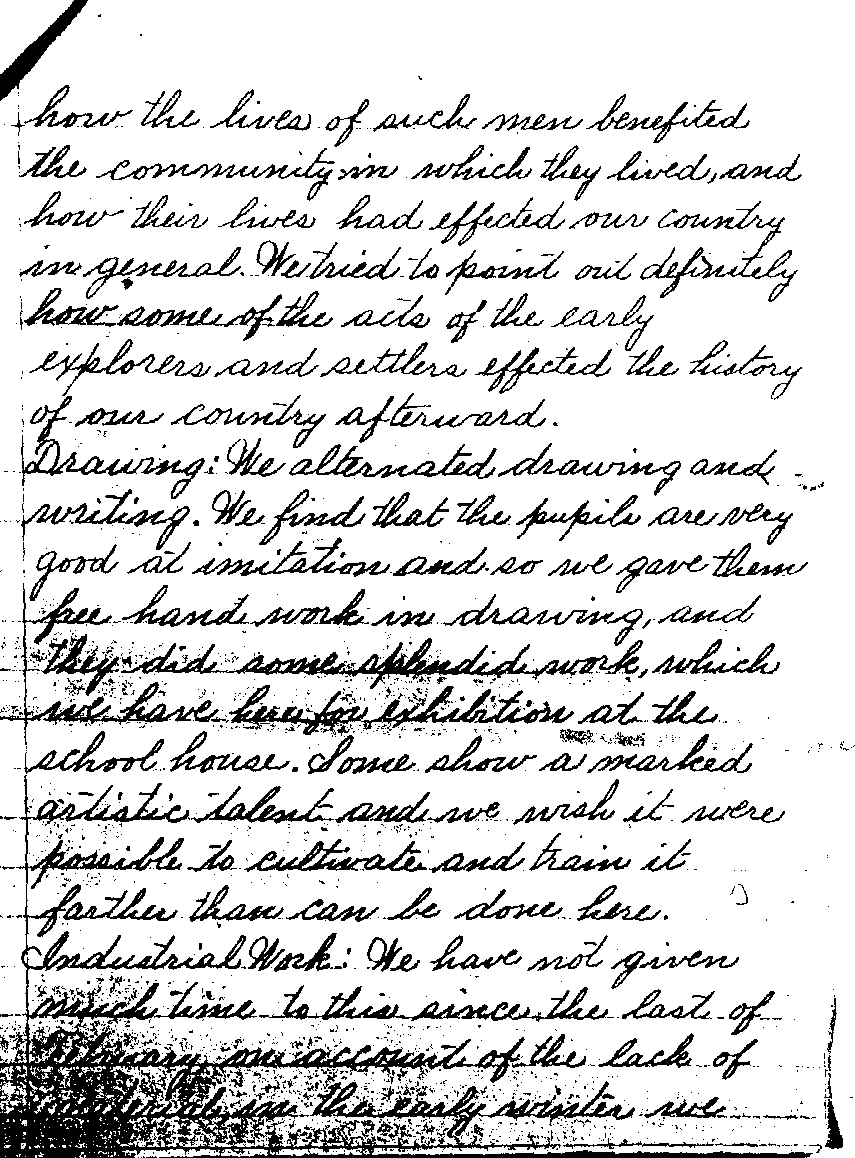 how the lives of such men benefited
the community in which they lived, and
how their lives had effected our country
in general. We tried to point out definitely
how some of the acts of the early
explorers and settlers effected the history
of our country afterward.
Drawing: We alternated drawing and
writing. We find that the pupils are very
good at imitation and so we gave them
free hand work in drawing, and
they did some splendid work, which
we have here for exhibition at the
school house. Some show a marked
artistic talent and we wish it were
possible to cultivate and train it
farther than can be done here.
Industrial Work: We have not given
much time to this since the last of
February on account of the lack of
material in the early winter we